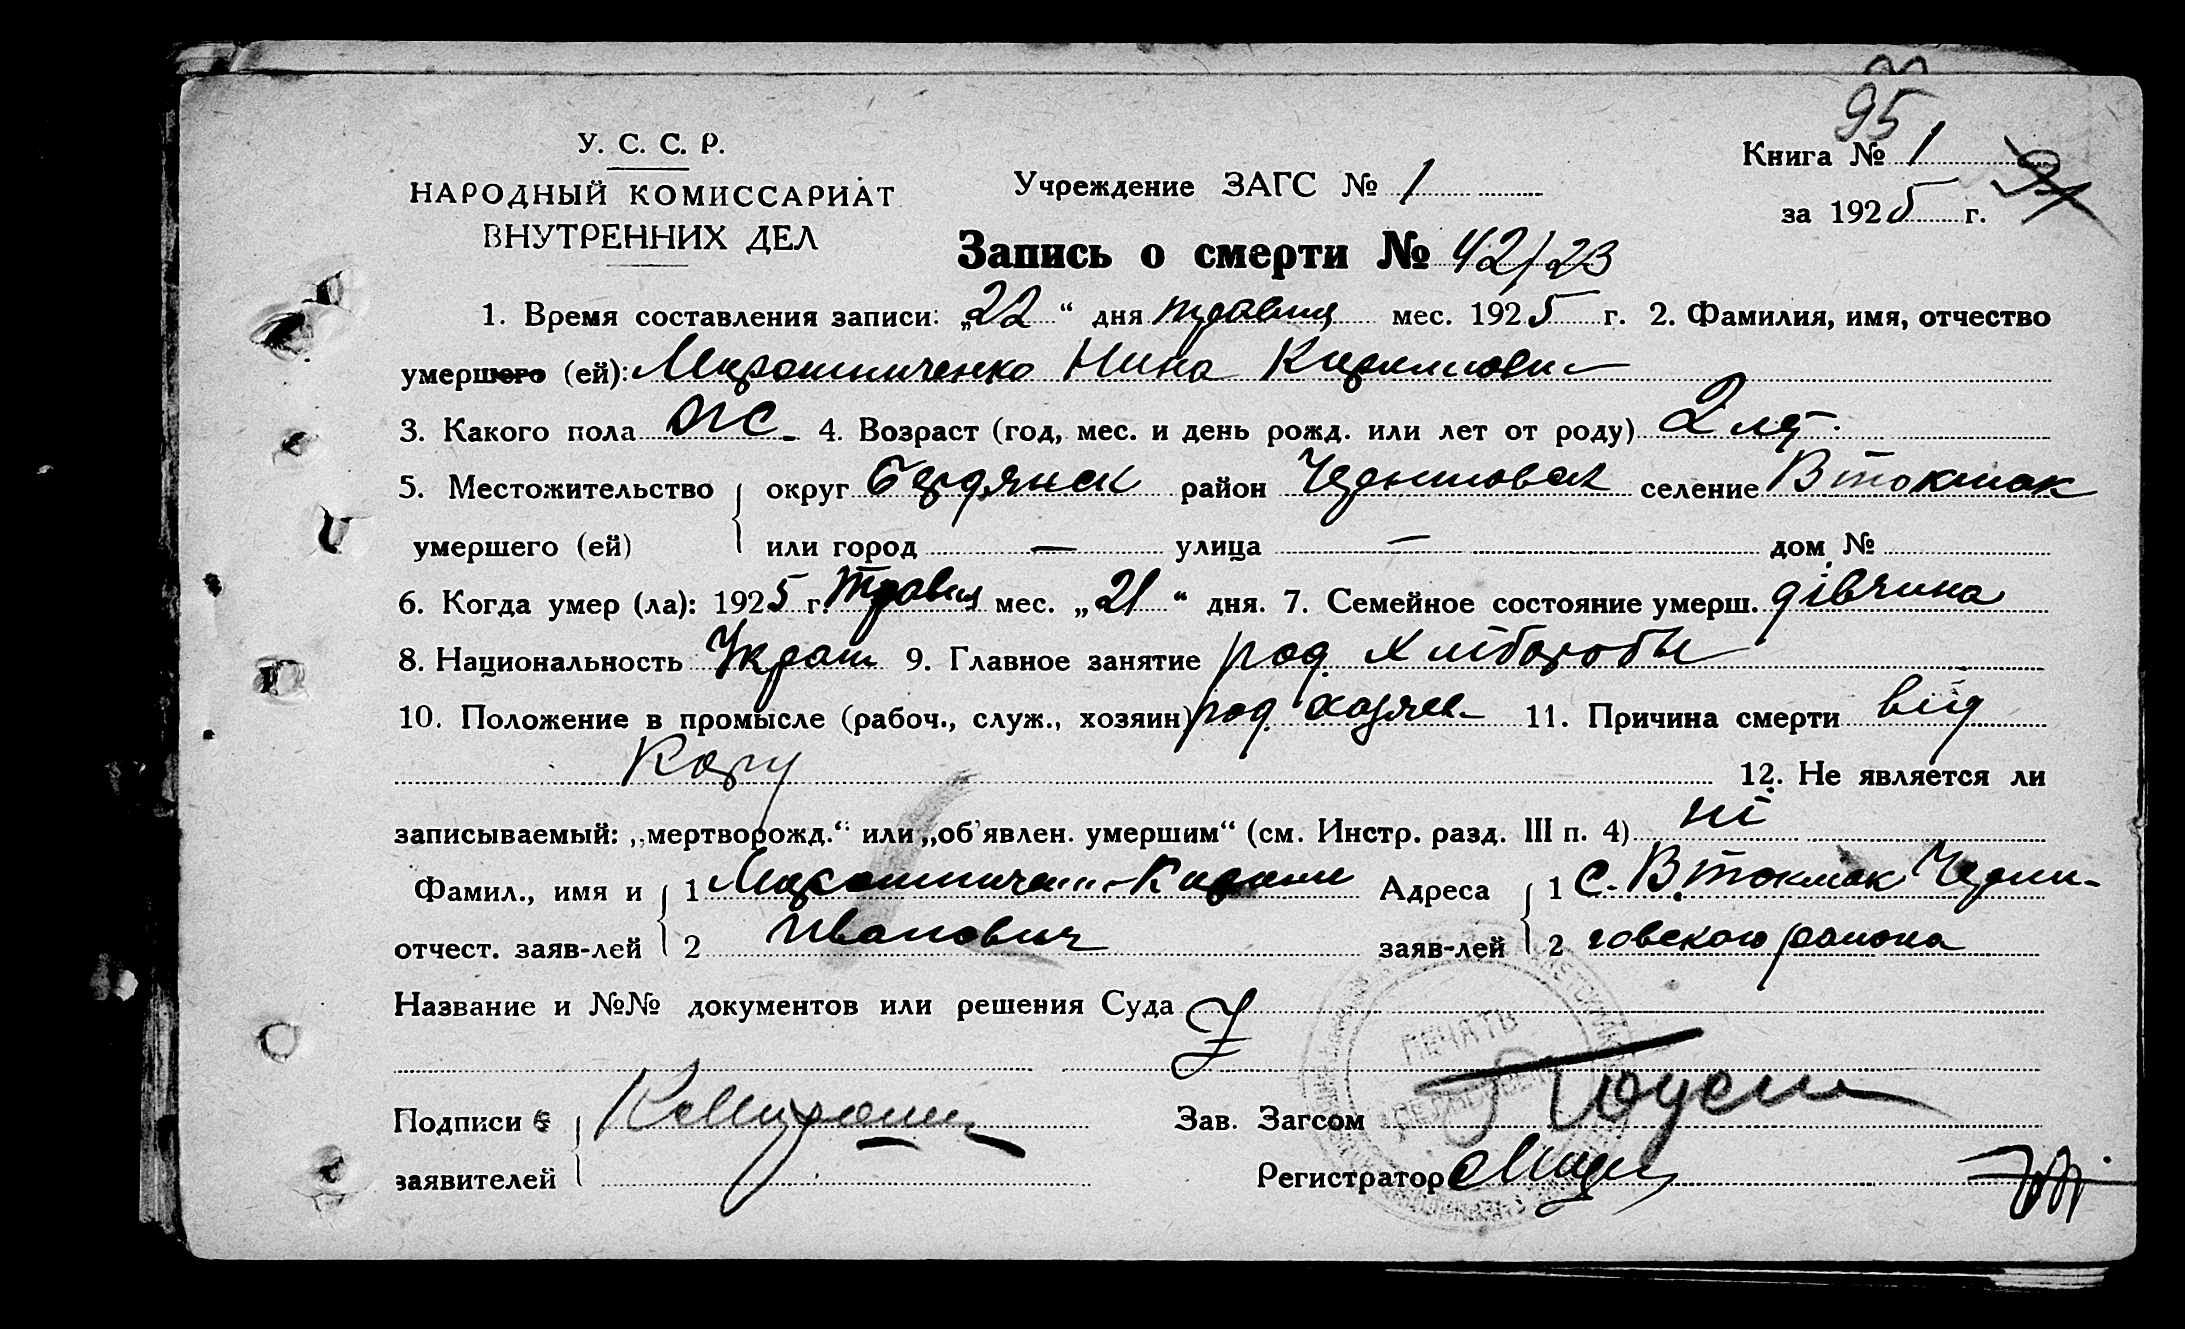 95
У. С. С. Р.
НАРОДНЫЙ КОМИССАРИАТ
ВНУТРЕННИХ ДЕЛ
Учреждение ЗАГС № 1
Книга № 1
за 1925 г.
Запись о смерти № 42/23
1. Время составления записи: „22“ дня травня мес. 1925 г. 2. Фамилия, имя, отчество
умершего (ей): Мирошниченко Нина Кирилловн
3. Какого пола жс 4. Возраст (год, мес. и день рожд. или лет от роду) 2 лт.
5. Местожительство округ Бердянск район Черниговск селение Втокмак
умершего (ей) или город — улица — дом №
6. Когда умер (ла): 1925 г. Травня мес. „21“ дня. 7. Семейное состояние умерш. дівчина
8. Национальность Украин 9. Главное занятие род хлібороби
10. Положение в промысле (рабоч., служ., хозяин) род хозяев 11. Причина смерти від
Кору 12. Не является ли
записываемый: „мертворожд.“ или „об'явлен. умершим“ (см. Инстр. разд. III п. 4) ні
Фамил., имя и 1 Мирошничен Кирил Адреса 1 С. В. Токмак Черни-
отчест. заяв-лей 2 Иванович заяв-лей 2 говского района
Название и №№ документов или решения Суда
Подписи Зав. Загсом
заявителей Регистратор
ПЕЧАТЬ